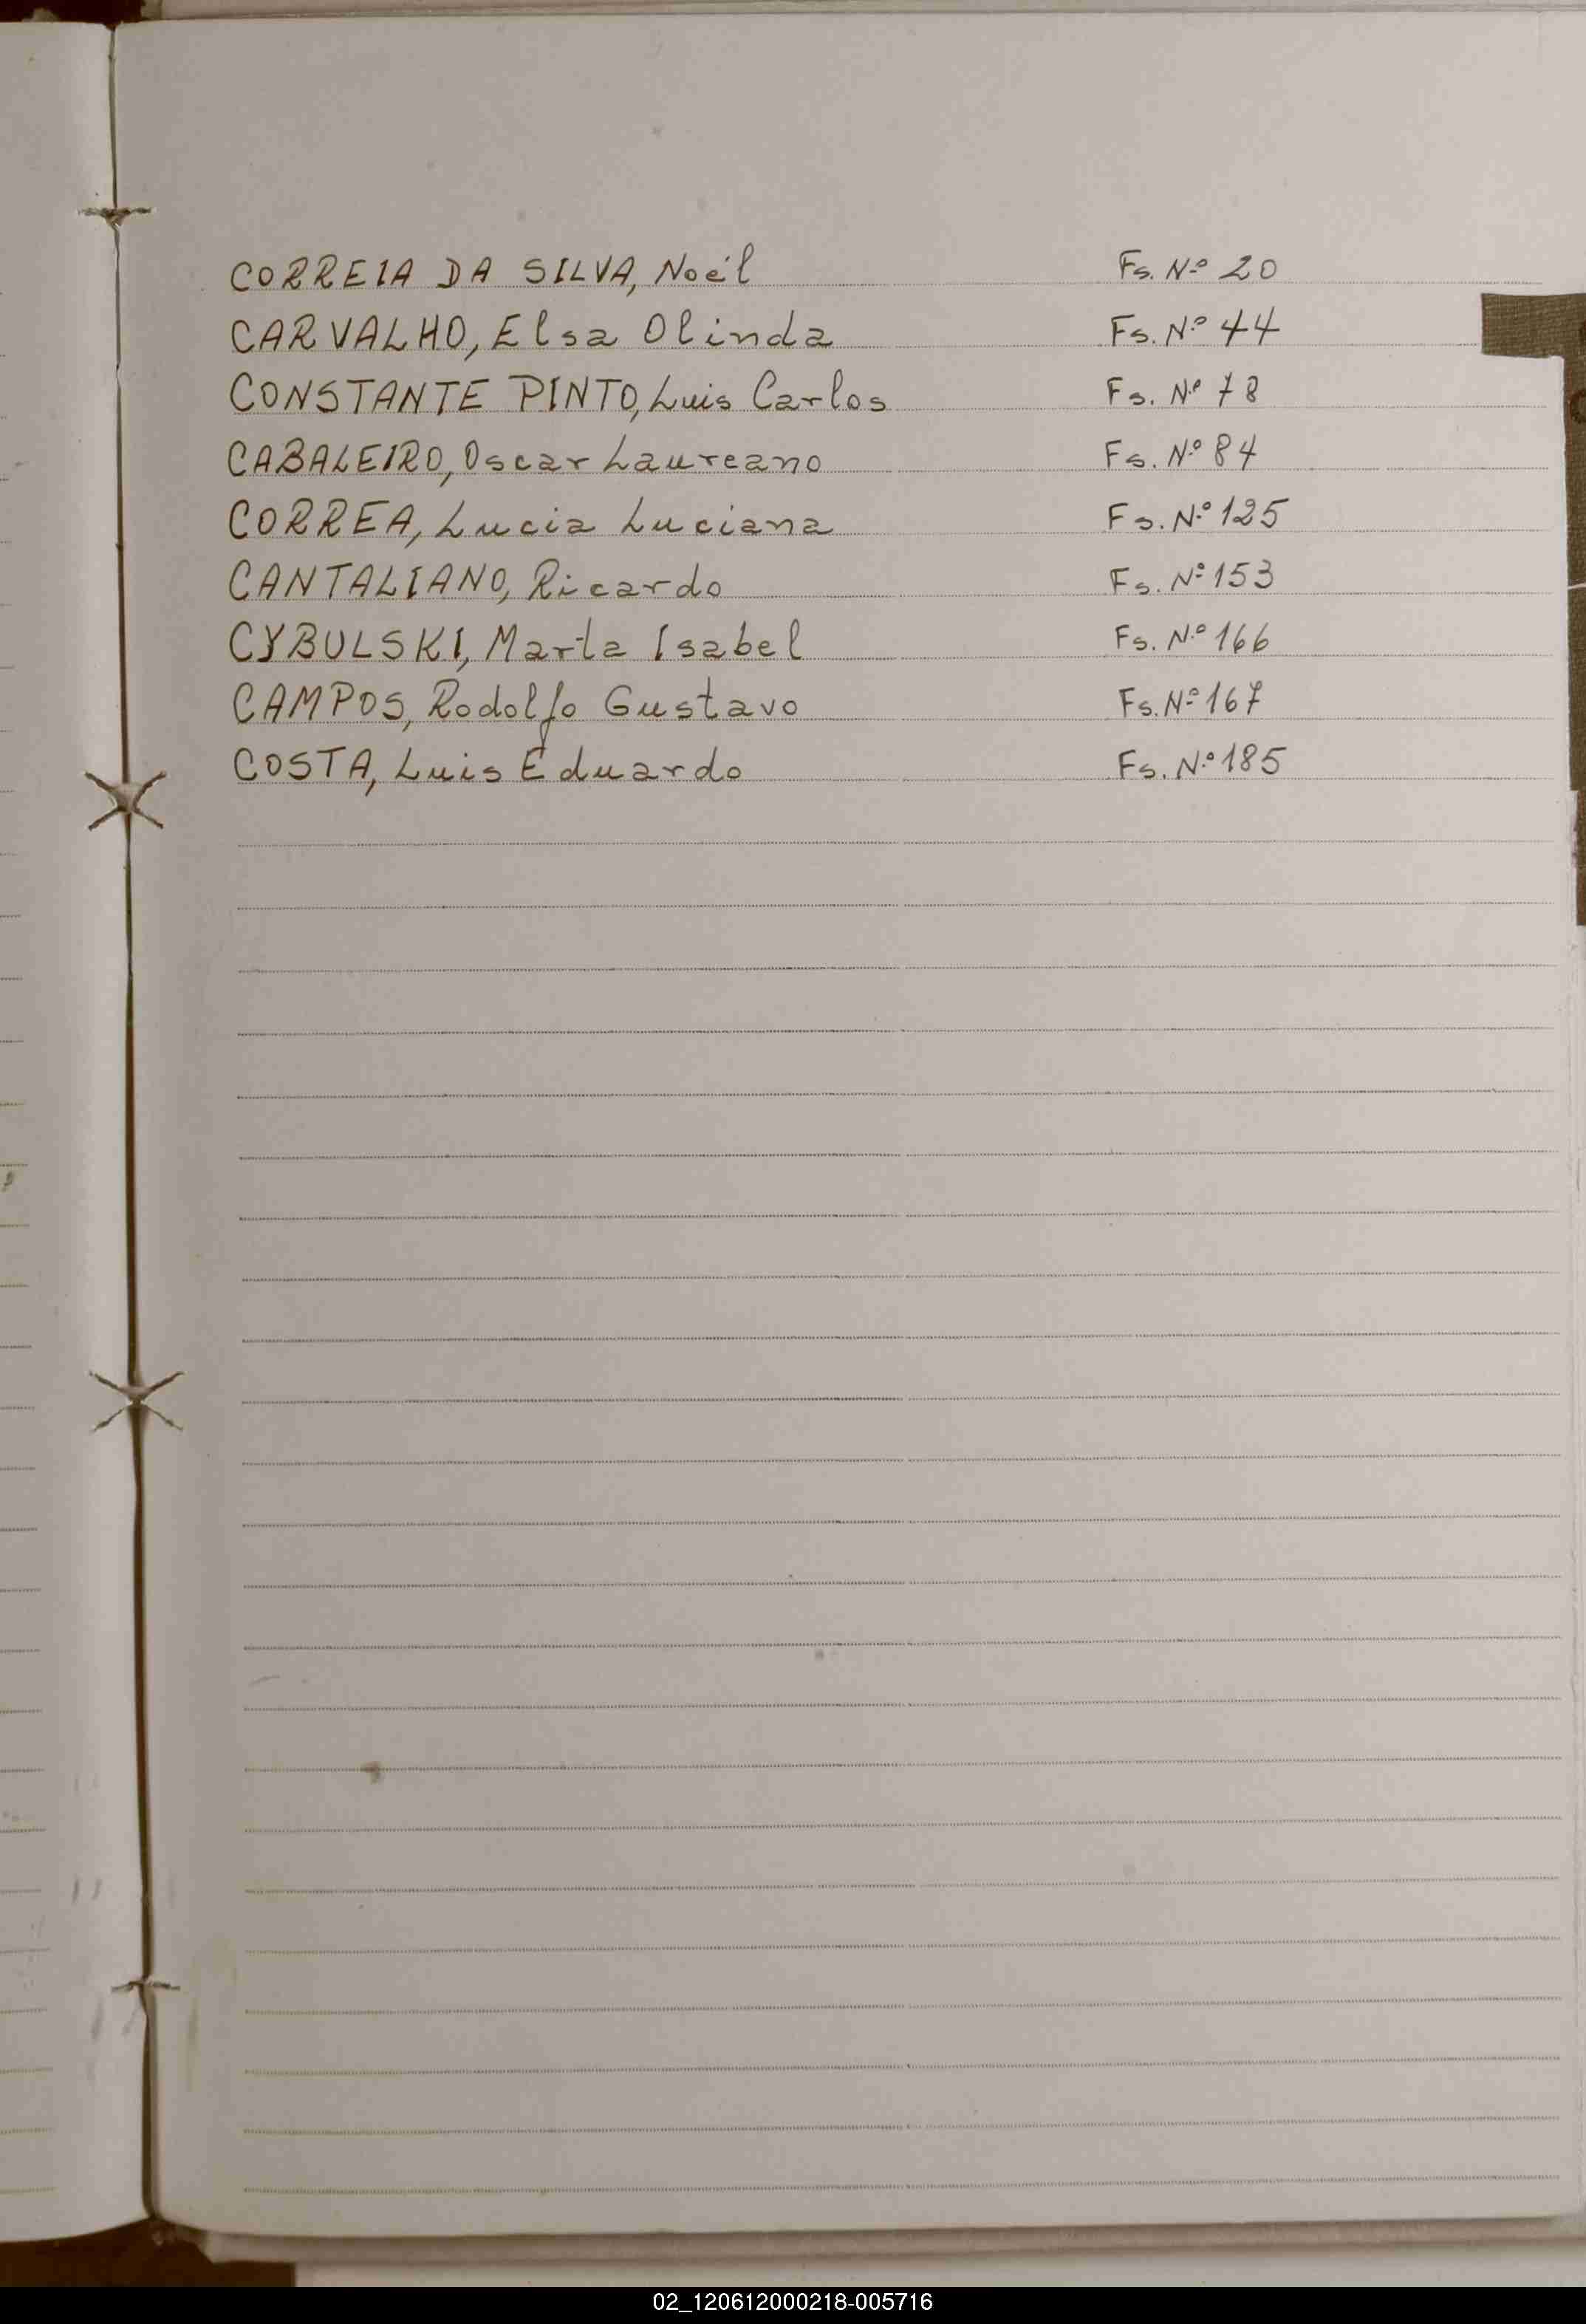 CORREIA DA SILVA, Noél Fs. Nº 20
CARVALHO, Elsa Olinda Fs. Nº 44
CONSTANTE PINTO, Luis Carlos Fs. Nº 78
CABALEIRO, Oscar Laureano Fs. Nº 84
CORREA, Lucia Luciana Fs. Nº 125
CANTALIANO, Ricardo Fs. Nº 153
CYBULSKI, Marta Isabel Fs. Nº 166
CAMPOS, Rodolfo Gustavo Fs. Nº 167
COSTA, Luis Eduardo Fs. Nº 185
02_120612000218-005716